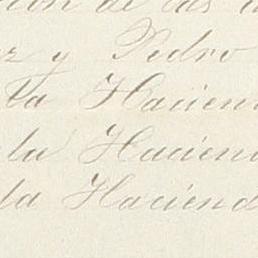 ion de las
z y Pedro
la Hacien
la Hacien
la Haciend